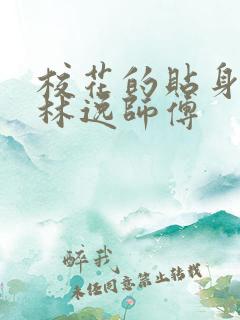 校花的貼身
林逸師傅
醉我
未经同意禁止转载